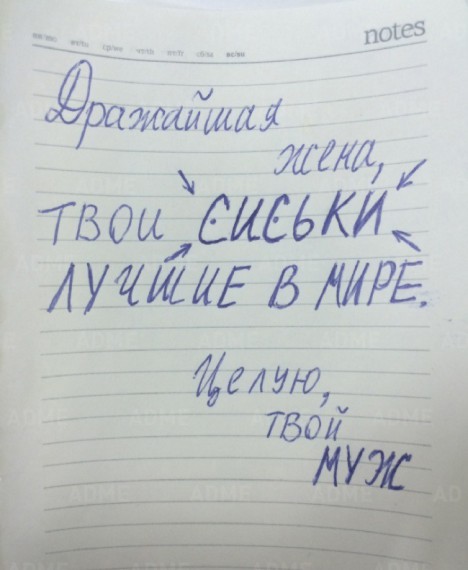 notes
Дражайшая
жена,
ТВОИ СИСЬКИ
ЛУЧШИЕ В МИРЕ.
Целую,
ТВОЙ
МУЖ